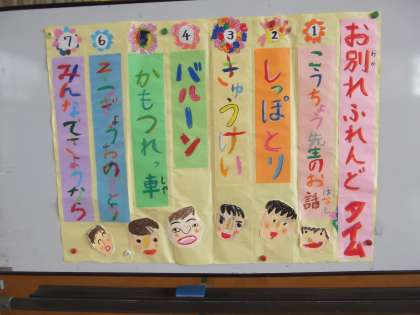 お別れふれんどタイム
わか
1
こうちょう先生のお話
はなし
2
しっぽとり
3
きゅうけい
4
バルーン
5
かもつれっ車
しゃ
6
7
みんなでさようなら